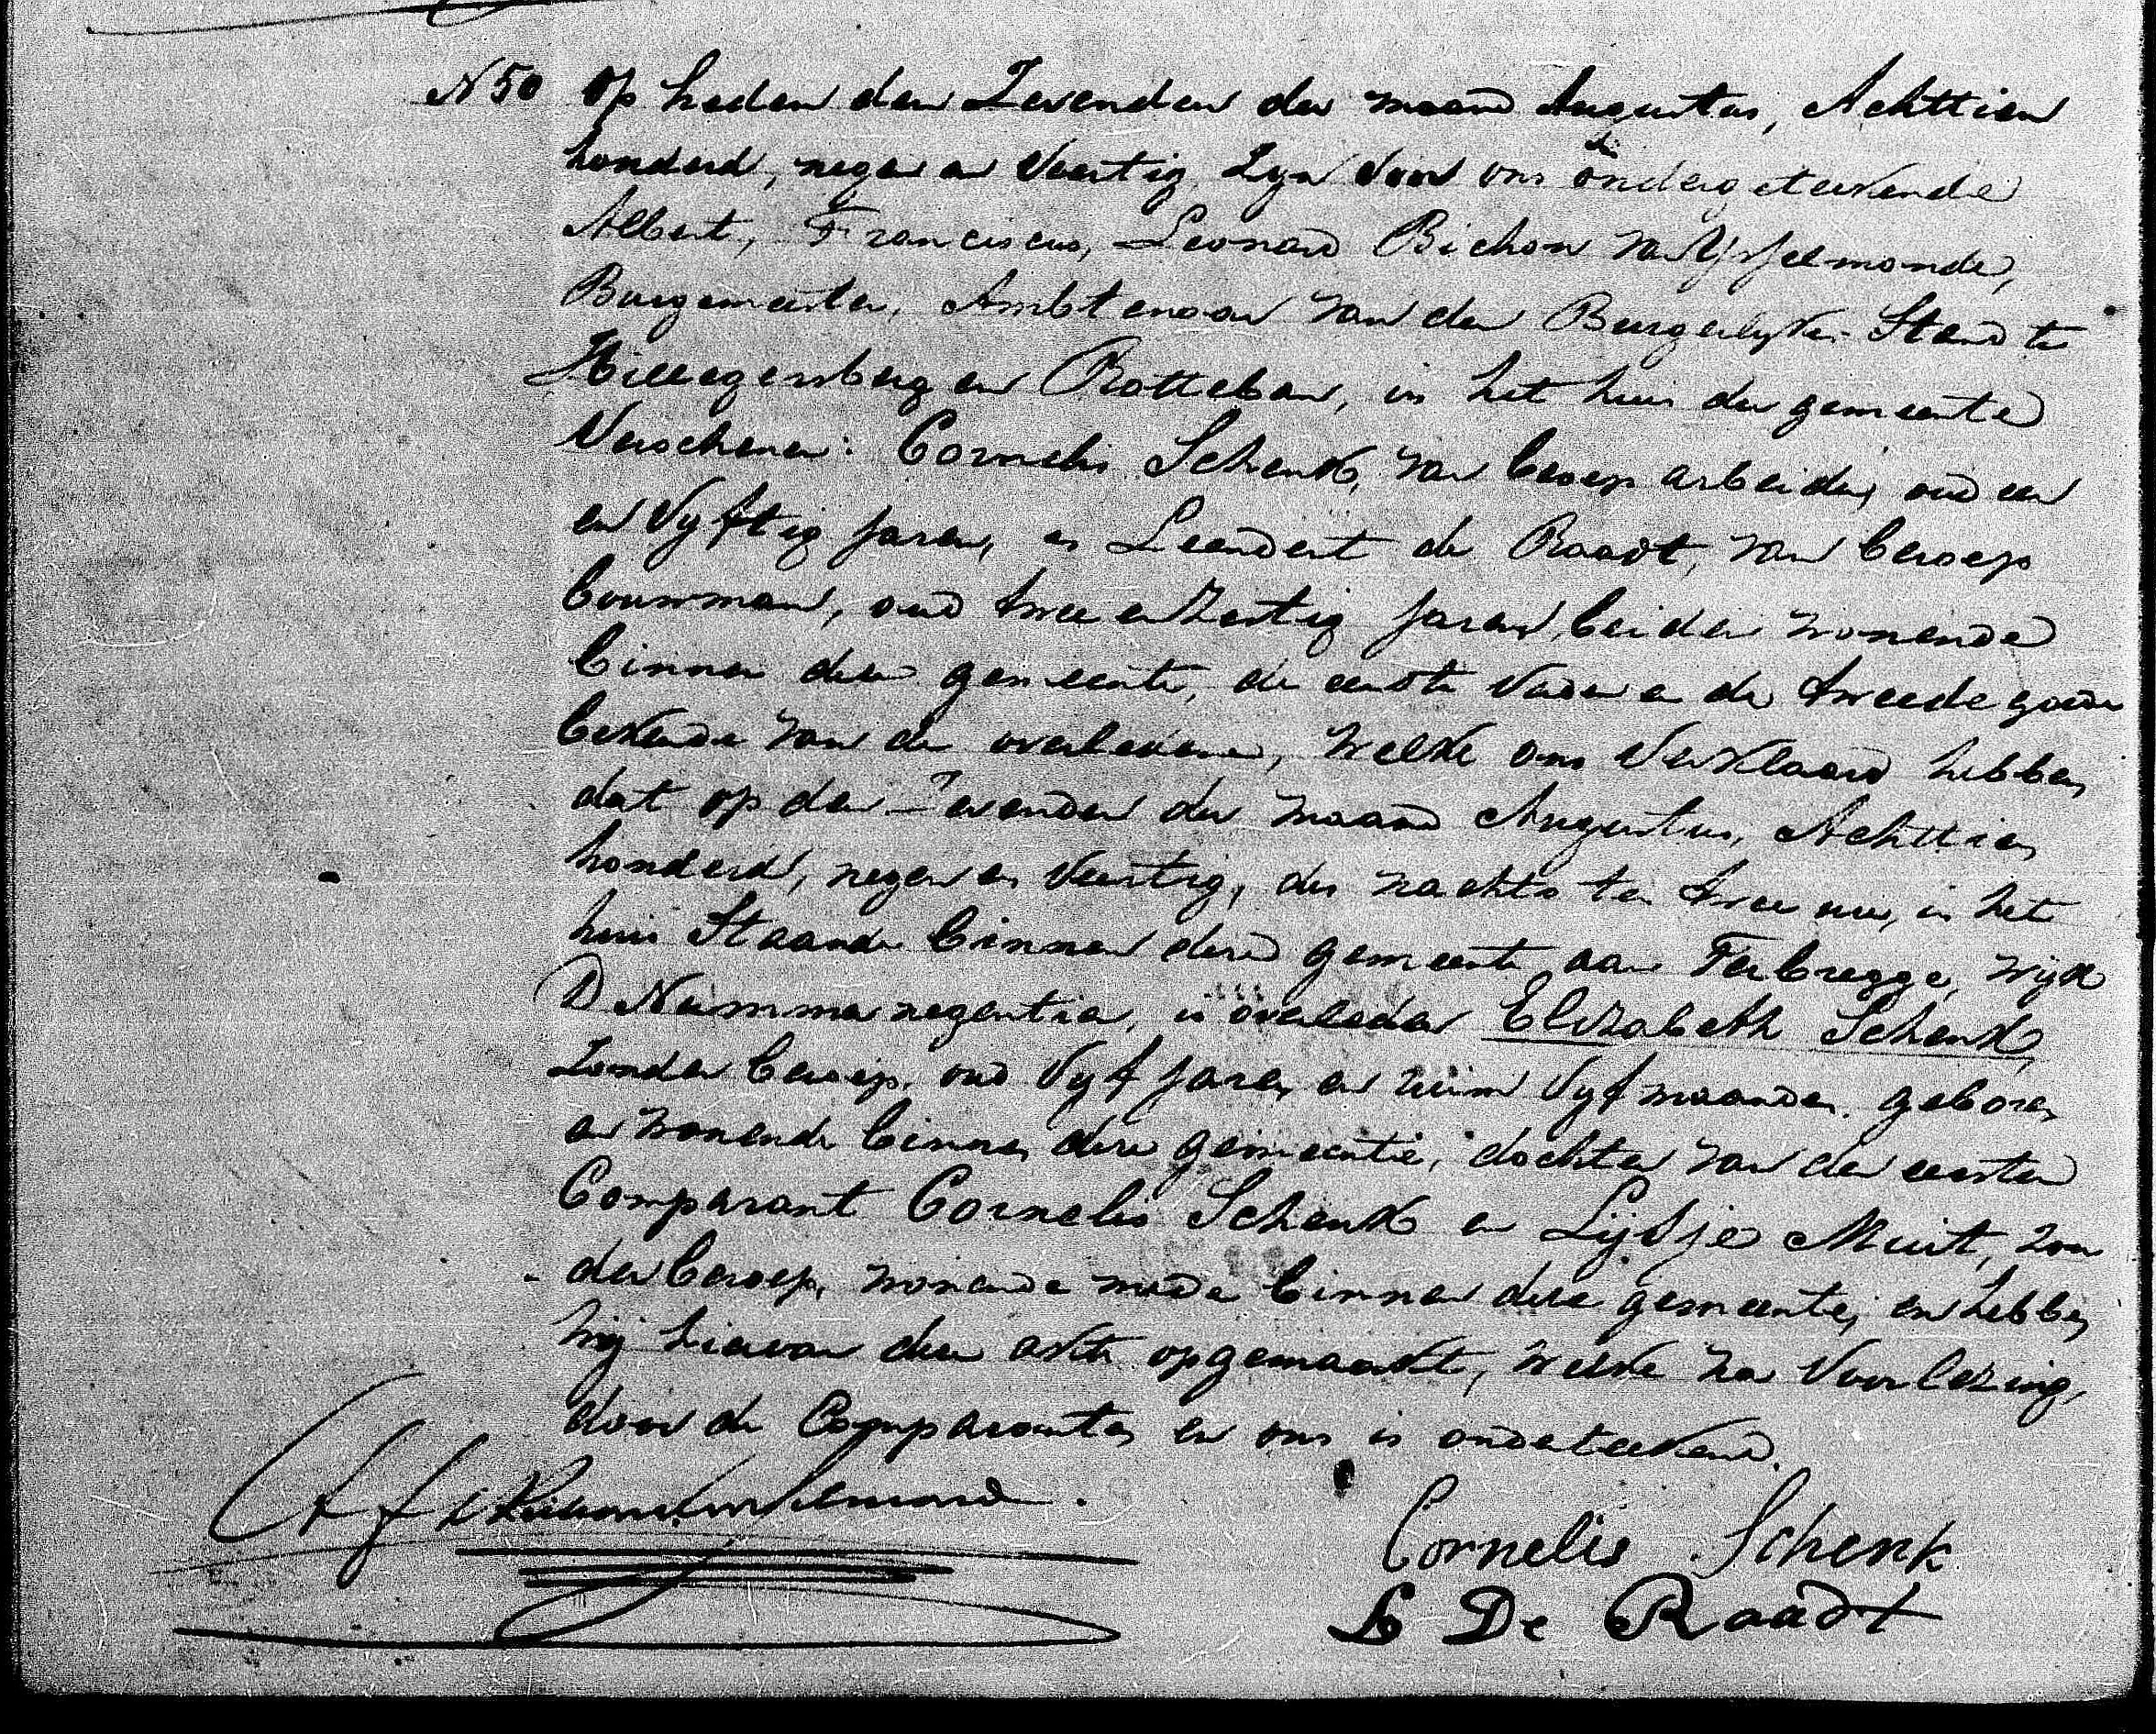 N 50 Op heden den Zevenden der maand Augustus, Achttien
honderd, negen en Veertig Zyn Voor ons ondergeteekende
Albert, Franciscus, Leonard Bichon van Ysselmonde,
Burgemeester, Ambtenaar van den Burgerlyken Stand te
Hillegersberg en Rotteban, in het huis der gemeente
Verschenen: Cornelis Schenk, van beroep arbeider, oud een
en Vyftig jaren, en Leendert de Raadt, van beroep
bouwman, oud twee en Zestig jaren, beiden wonende
binnen deze gemeente, de eerste Vader en de tweede goede
bekende van de overledene, welke ons Verklaard hebben,
dat op den Zevenden der maand Augustus, Achttien
honderd, negen en Veertig, des nachts ten twee ure, in het
huis Staande binnen deze gemeente aan Terbregge, wijk
D Nummer negentien, is overleden Elizabeth Schenk,
Zonder beroep, oud Vyf jaren en ruim Vyf maanden, geboren
en wonende binnen deze gemeente, dochter van den eersten
Comparant Cornelis Schenk en Lijdje Muit, zon
der beroep, wonende mede binnen deze gemeente, en hebben
wij hiervan deze akte opgemaakt, welke na Voorlezing,
door de Comparanten en ons is onderteekend.
Cornelis Schenk
L De Raadt